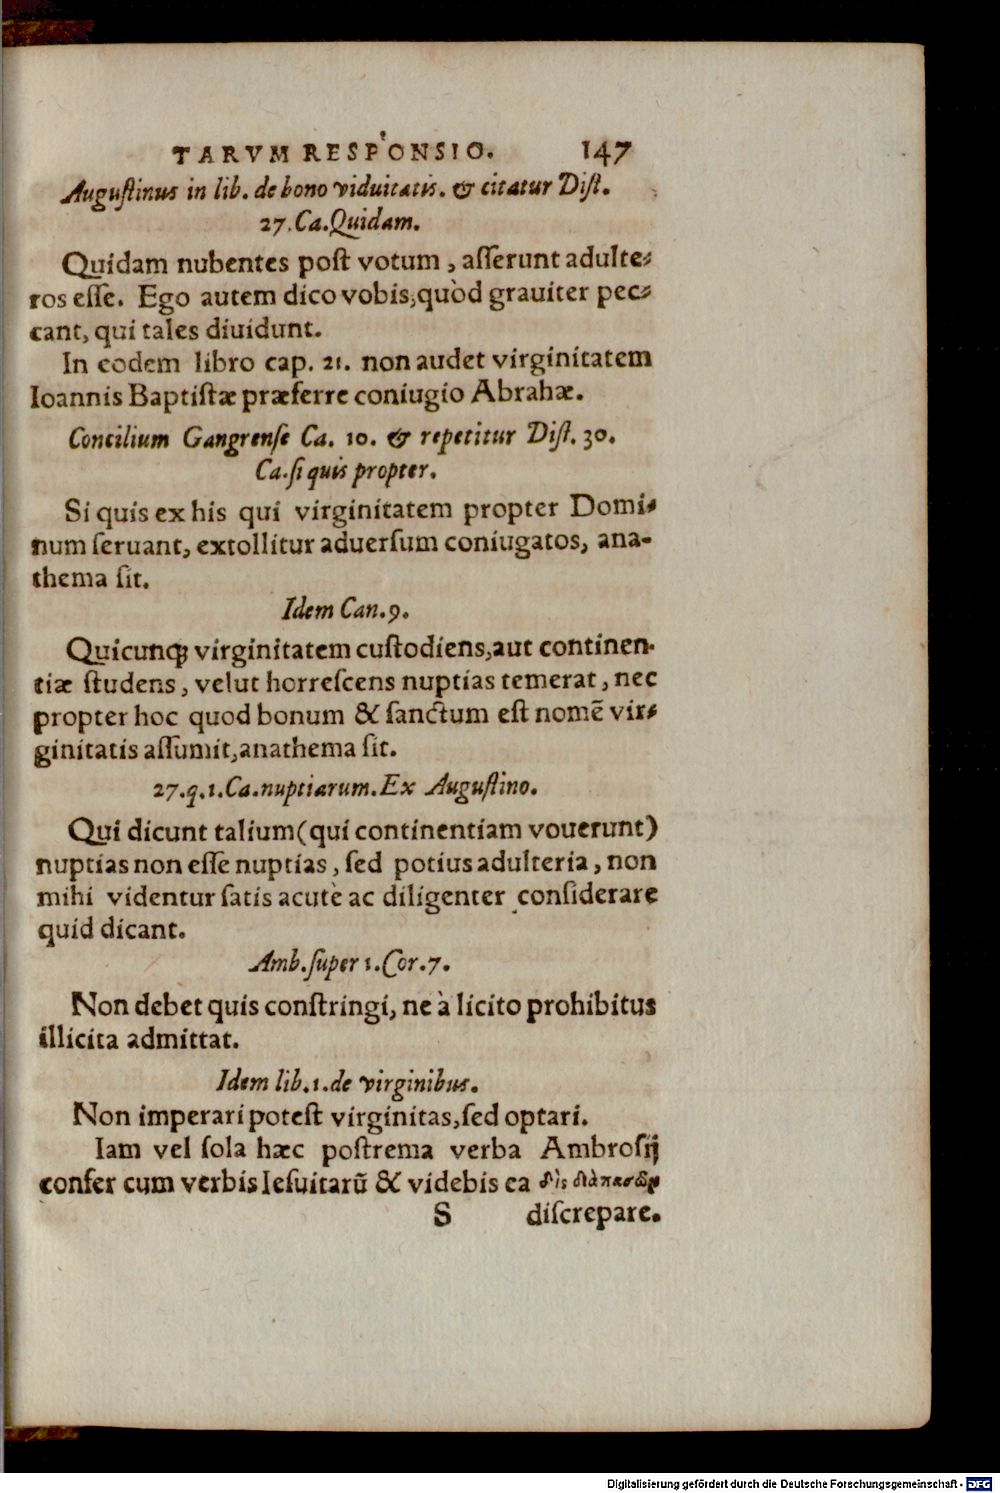 TARVM RESPONSIO. 147
Auguſtinus in lib. de bono viduitatis. & citatur Diſt.
27. Ca. Quidam.
Quidam nubentes poſt votum, aſſerunt adulte-
ros eſſe. Ego autem dico vobis, quòd grauiter pec-
cant, qui tales diuidunt.
In eodem libro cap. 21. non audet virginitatem
Ioannis Baptiſtæ præferre coniugio Abrahæ.
Concilium Gangrenſe Ca. 10. & repetitur Diſt. 30.
Ca. ſi quis propter.
Si quis ex his qui virginitatem propter Domi-
num ſeruant, extollitur aduerſum coniugatos, ana-
thema ſit.
Idem Can. 9.
Quicunq; virginitatem cuſtodiens, aut continen-
tiæ ſtudens, velut horreſcens nuptias temerat, nec
propter hoc quod bonum & ſanctum eſt nomē vir-
ginitatis aſſumit, anathema ſit.
27. q. 1. Ca. nuptiarum. Ex Auguſtino.
Qui dicunt talium (qui continentiam vouerunt)
nuptias non eſſe nuptias, ſed potius adulteria, non
mihi videntur ſatis acutè ac diligenter conſiderare
quid dicant.
Amb. ſuper 1. Cor. 7.
Non debet quis conſtringi, ne à licito prohibitus
illicita admittat.
Idem lib. 1. de virginibus.
Non imperari poteſt virginitas, ſed optari.
Iam vel ſola hæc poſtrema verba Ambroſij
confer cum verbis Ieſuitarũ & videbis ea δὶς διὰ πασῶν
S diſcrepare.
Digitalisierung gefördert durch die Deutsche Forschungsgemeinschaft - DFG